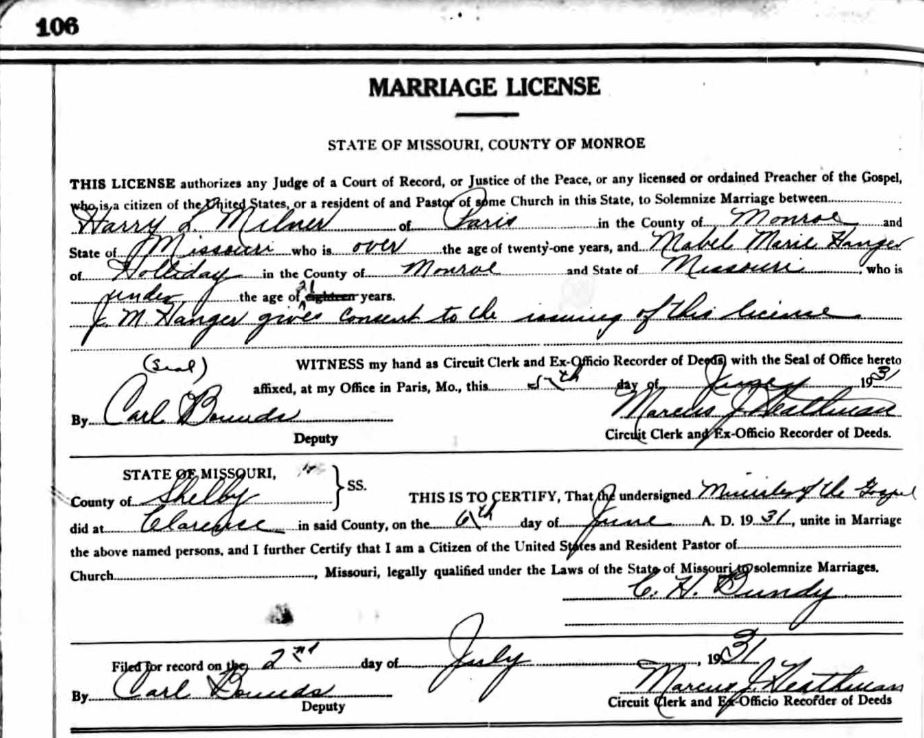 106
MARRIAGE LICENSE
STATE OF MISSOURI, COUNTY OF MONROE
THIS LICENSE authorizes any Judge of a Court of Record, or Justice of the Peace, or any licensed or ordained Preacher of the Gospel,
who is a citizen of the United States, or a resident of and Pastor of some Church in this State, to Solemnize Marriage between
Harry L. Milner of Paris in the County of Monroe and
State of Missouri who is over the age of twenty-one years, and Mabel Marie Hanger
of Holliday in the County of Monroe and State of Missouri, who is
under the age of 21 eighteen years.
J. M. Hanger gives consent to the issuing of this license
(Seal) WITNESS my hand as Circuit Clerk and Ex-Officio Recorder of Deeds, with the Seal of Office hereto
affixed, at my Office in Paris, Mo., this 5th day of 1931
By Carl Bounds Marcus J. Heathman
Deputy Circuit Clerk and Ex-Officio Recorder of Deeds.
STATE OF MISSOURI,
County of Shelby } SS. THIS IS TO CERTIFY, That the undersigned Minister of the Gospel
did at Clarence in said County, on the 6th day of June A. D. 1931, unite in Marriage
the above named persons, and I further Certify that I am a Citizen of the United States and Resident Pastor of
Church, Missouri, legally qualified under the Laws of the State of Missouri to solemnize Marriages.
C. H. Bundy
Filed for record on the 2nd day of July, 1931
By Carl Bounds Marcus J. Heathman
Deputy Circuit Clerk and Ex-Officio Recorder of Deeds